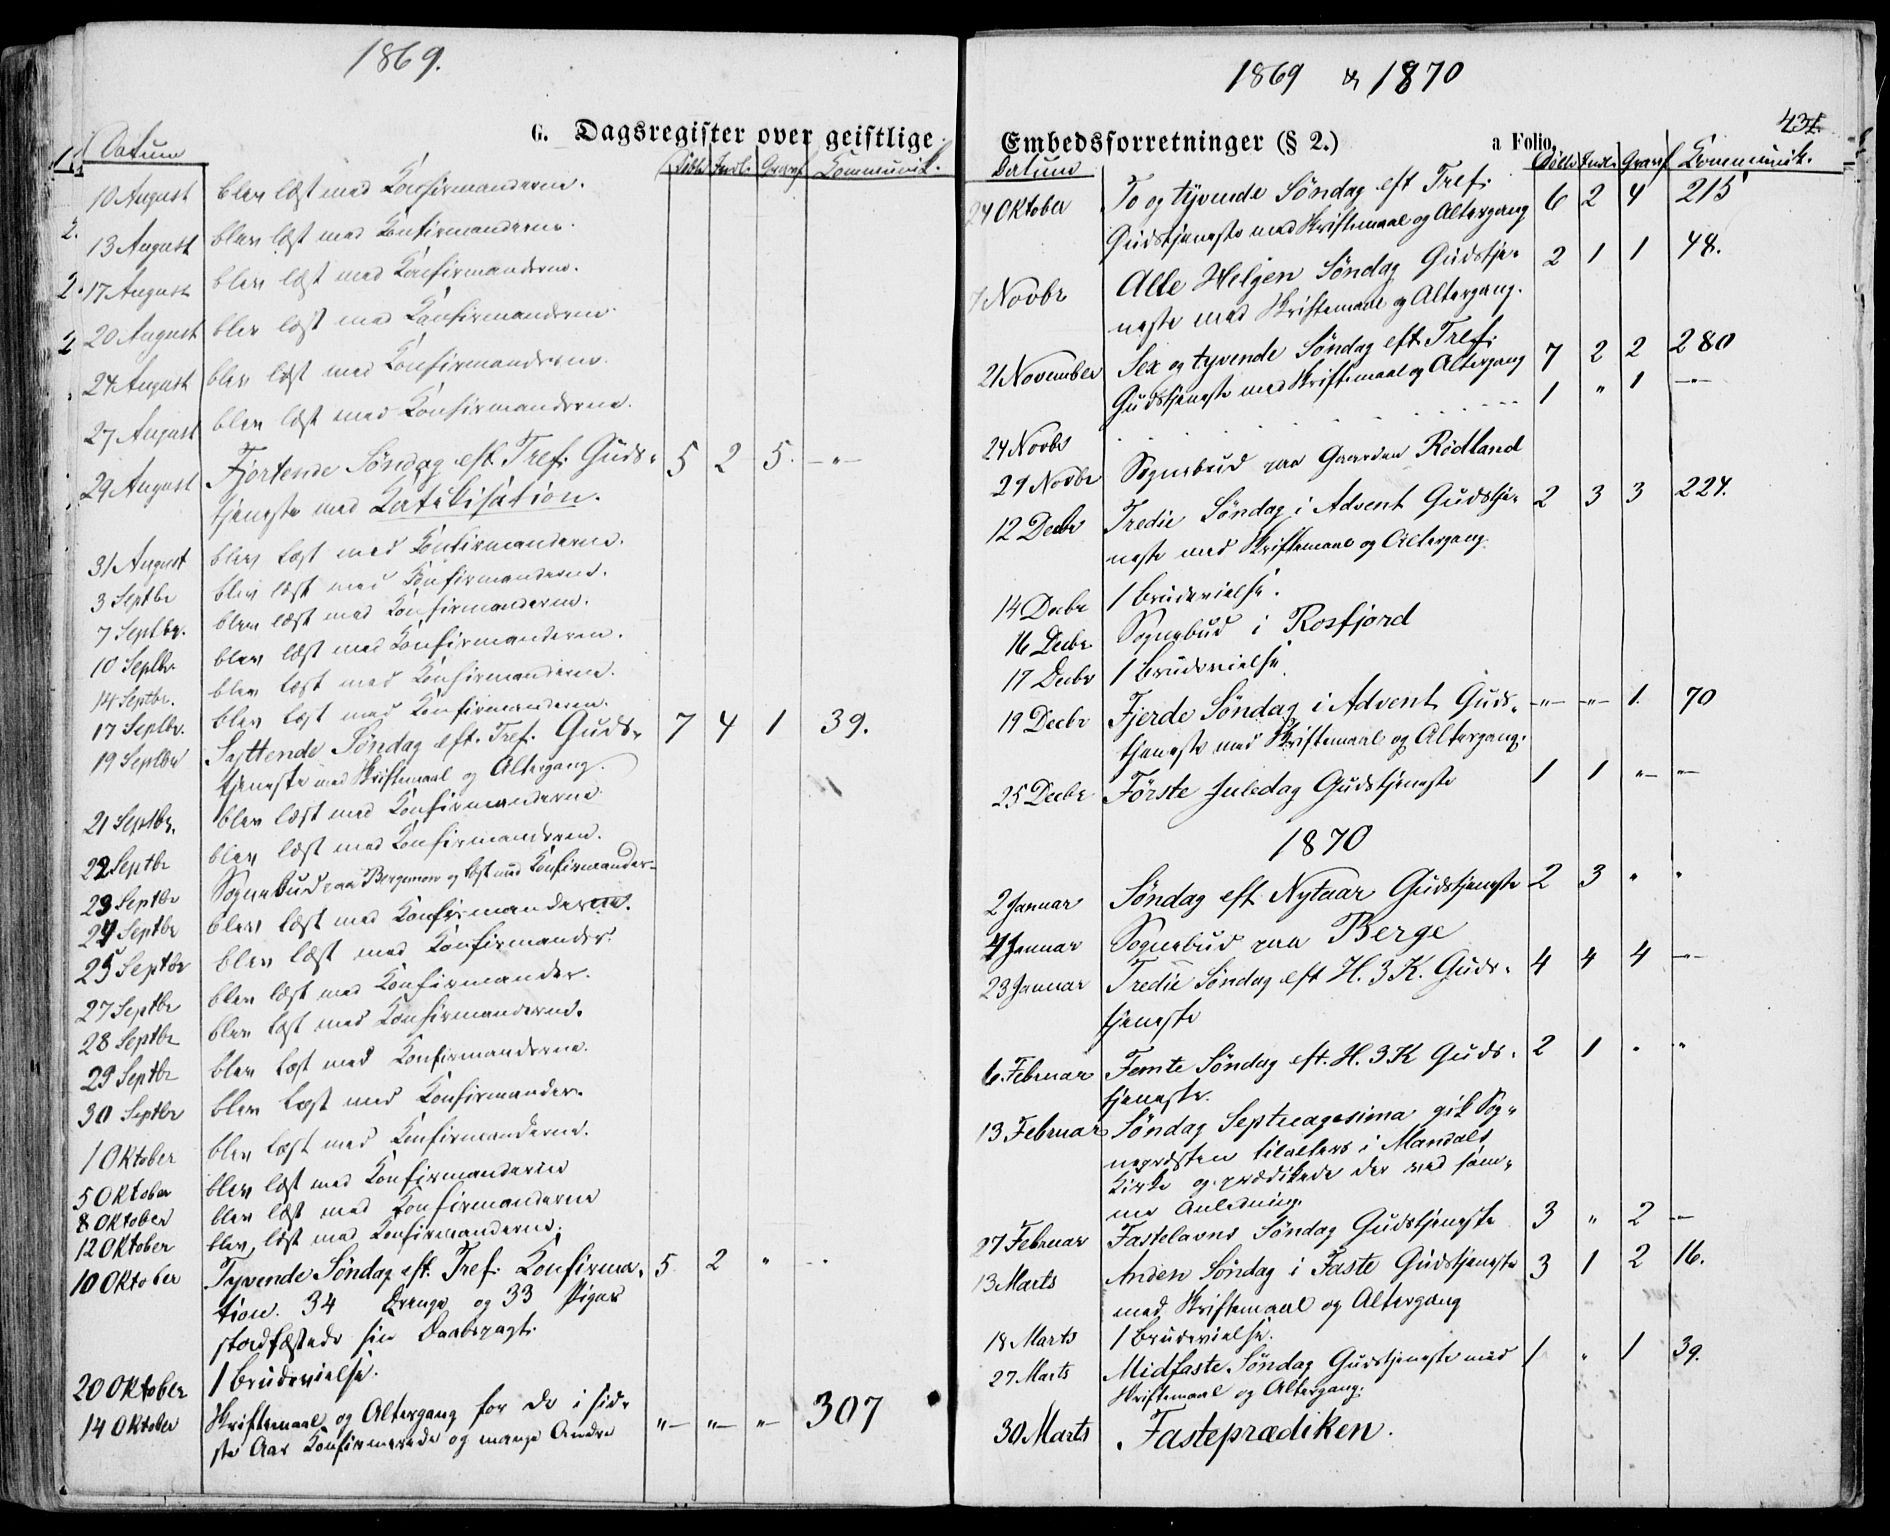 1869.
G. Dagsregister over geistlige
Datum Döbte Indl. Graaf. Kommunik.
10 August blev læst med Konfirmanderne.
2. 13 August blev læst med Konfirmanderne.
2. 17 August blev læst med Konfirmanderne.
2 20 August blev læst med Konfirmanderne.
24 August blev læst med Konfirmanderne.
27 August blev læst med Konfirmanderne.
29 August Fjortende Søndag eft. Tref. Guds- 5 2 5. -"-
tjeneste med Katekisation.
31 August blev læst med Konfirmanderne.
3 Septbr blev læst med Konfirmanderne.
7 Septbr. blev læst med Konfirmanderne.
10 Septbr blev læst med Konfirmanderne.
14 Septbr. blev læst med Konfirmanderne.
17 Septbr. blev læst med Konfirmanderne.
19 Septbr Syttende Søndag eft. Tref. Guds- 7 4 1 39.
tjeneste med Skriftemaal og Altergang.
21 Septbr. blev læst med Konfirmanderne
22 Septbr blev læst med Konfirmanderne.
23 Septbr Sognebud paa og læst med Konfirmander-
24 Septbr blev læst med Konfirmanderne.
25 Septbr blev læst med Konfirmander.
27 Septbr blev læst med Konfirmander.
28 Septbr blev læst med Konfirmanderne.
29 Septbr blev læst med Konfirmanderne.
30 Septbr blev læst med Konfirmander.
1 Oktober blev læst med Konfirmanderne.
5 Oktober blev læst med Konfirmanderne
8 Oktober blev læst med Konfirmanderne
12 Oktober blev læst med Konfirmanderne.
10 Oktober Tyvende Søndag eft. Tref. Konfirma- 5 2 " -"
tion. 34 Drenge og 33 Piger
stadfæstede sin Daabspagt.
20 Oktober 1 Brudevielse.
14 Oktober Skriftemaal og Altergang for de i sid- "- "- "- 307
ste Aar Konfirmerede og mange Andre
1869 & 1870
Embedsforretninger (§ 2.) a Folio 431.
Datum Döbte Indl. Graaf Kommunik.
24 Oktober To og tyvende Søndag eft Tref. 6 2 4 215
Gudstjeneste med Skriftemaal og Altergang
7 Novbr Alle Helgen Søndag Gudstje- 2 1 1 48.
neste med Skriftemaal og Altergang.
21 November Sex og tyvende Søndag eft Tref. 7 2 2 280
Gudstjeneste med Skriftemaal og Altergang
24 Novbr . . . . . . . . 1 " 1 -"-
29 Novbr Sognebud paa Gaarden Rødland
12 Decbr Tredie Søndag i Advent Gudstje- 2 3 3 224.
neste med Skriftemaal og Altergang.
14 Decbr 1 Brudevielse.
16 Decbr Sognebud i Rosfjord
17 Decbr 1 Brudevielse
19 Decbr Fjerde Søndag i Advent Guds- -"- -"- 1. 70
tjeneste med Skriftemaal og Altergang.
25 Decbr Første Juledag Gudstjeneste 1 1 "- "-
1870
2 Januar Søndag eft Nytaar Gudstjeneste 2 3 " "
4 Januar Sognebud paa Berge
23 Januar Tredie Søndag eft H. 3 K. Guds- 4 4 4 -"-
tjeneste
6. Februar Femte Søndag eft. H. 3 K Guds- 2 1 " "
tjeneste.
13 Februar Søndag Septuagesima gik Sog-
nepræsten tilalters i Mandals
Kirke og prædikede der ved sam-
me Anledning.
27 Februar Fastelavns Søndag Gudstjeneste 3 " 2 -
13 Marts Anden Søndag i Faste Gudstjeneste 3 1 2 16.
med Skriftemaal og Altergang
18 Marts 1 Brudevielse.
27 Marts Midfaste Søndag Gudstjeneste med 1 " 1 39.
Skriftemaal og Altergang.
30 Marts Fasteprædiken.